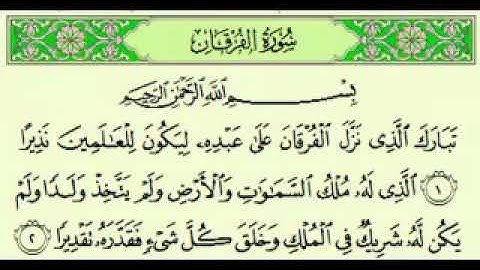 سُورَةُ الفُرْقَان
بِسْمِ اللَّهِ الرَّحْمَٰنِ الرَّحِيمِ
تَبَارَكَ الَّذِى نَزَّلَ الْفُرْقَانَ عَلَىٰ عَبْدِهِۦ لِيَكُونَ لِلْعَٰلَمِينَ نَذِيرًا
١ الَّذِى لَهُۥ مُلْكُ السَّمَٰوَٰتِ وَالْأَرْضِ وَلَمْ يَتَّخِذْ وَلَدًا وَلَمْ
يَكُن لَّهُۥ شَرِيكٌ فِى الْمُلْكِ وَخَلَقَ كُلَّ شَىْءٍ فَقَدَّرَهُۥ تَقْدِيرًا ٢